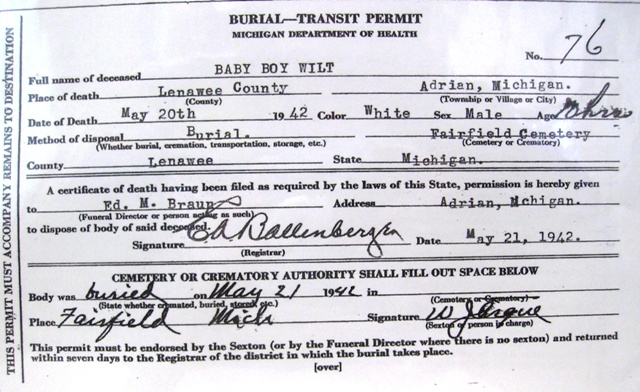 BURIAL—TRANSIT PERMIT
MICHIGAN DEPARTMENT OF HEALTH
No. 76
Full name of deceased BABY BOY WILT
Place of death Lenawee County Adrian, Michigan.
(County) (Township or Village or City)
Date of Death May 20th 1942 Color White Sex Male Age
Method of disposal Burial. Fairfield Cemetery
(Whether burial, cremation, transportation, storage, etc.) (Cemetery or Crematory)
County Lenawee State Michigan.
A certificate of death having been filed as required by the laws of this State, permission is hereby given
to Ed. M. Braun Address Adrian, Mchigan.
(Funeral Director or person acting as such)
to dispose of body of said deceased.
Signature Ballenberger Date May 21, 1942.
(Registrar)
CEMETERY OR CREMATORY AUTHORITY SHALL FILL OUT SPACE BELOW
Body was buried on May 21 1942 in
(State whether cremated, buried, stored etc.) (Cemetery or Crematory)
Place Fairfield Mich Signature
(Sexton or person in charge)
This permit must be endorsed by the Sexton (or by the Funeral Director where there is no sexton) and returned
within seven days to the Registrar of the district in which the burial takes place.
[over]
THIS PERMIT MUST ACCOMPANY REMAINS TO DESTINATION